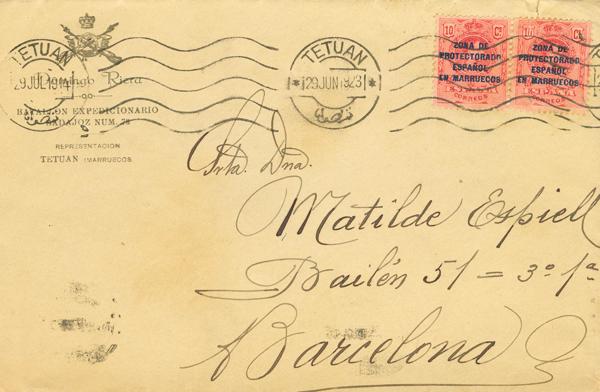 TETUAN
Domingo Riera
BATALLON EXPEDICIONARIO
BADAJOZ NUM. 73
REPRESENTACION
TETUAN (MARRUECOS
TETUAN
29 JUN 1923
تطوان
10 Cs
ZONA DE
PROTECTORADO
ESPAÑOL
EN MARRUECOS
CORREOS
10 Cs
ZONA DE
PROTECTORADO
ESPAÑOL
EN MARRUECOS
CORREOS
Srta. Dna.
Matilde Espiell
Bailén 51 = 3º 1ª
Barcelona